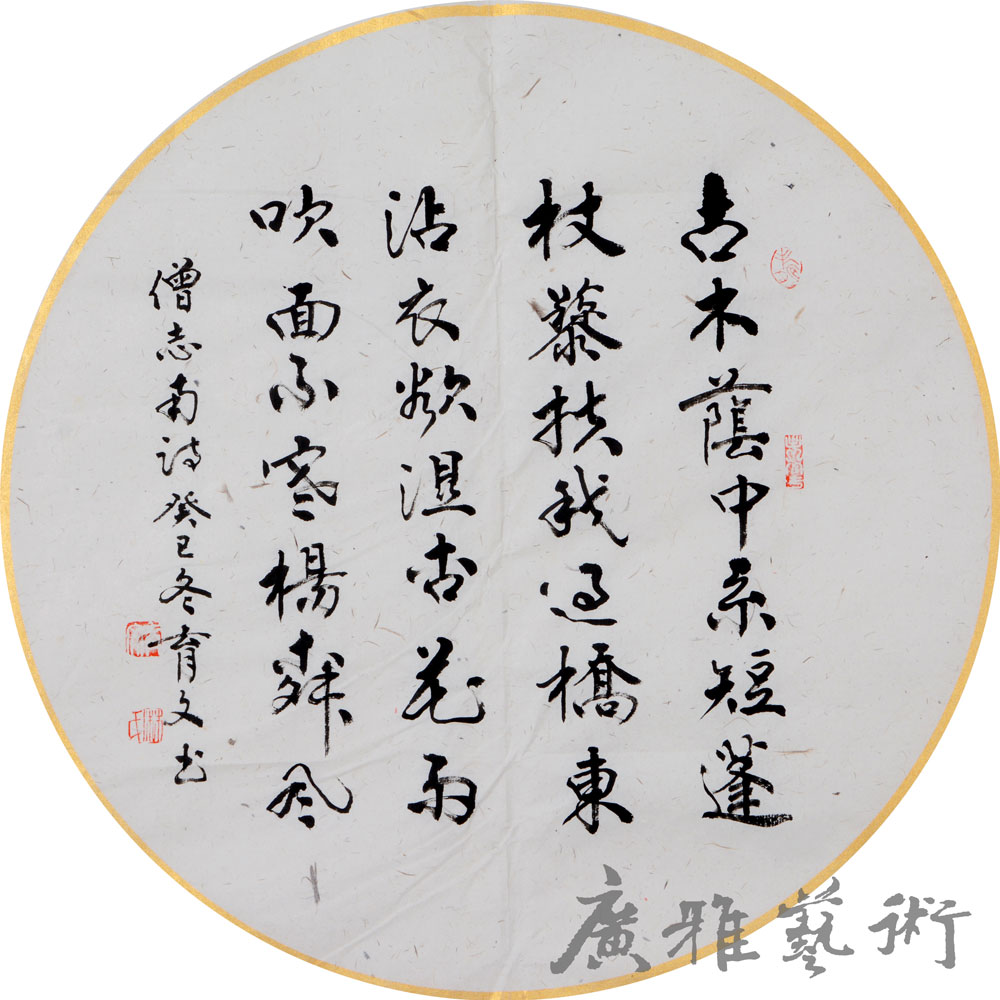 古木蔭中系短蓬
杖藜扶我過橋東
沾衣欲濕杏花雨
吹面不寒楊柳風
僧志南詩癸巳冬育文书
廣雅藝術